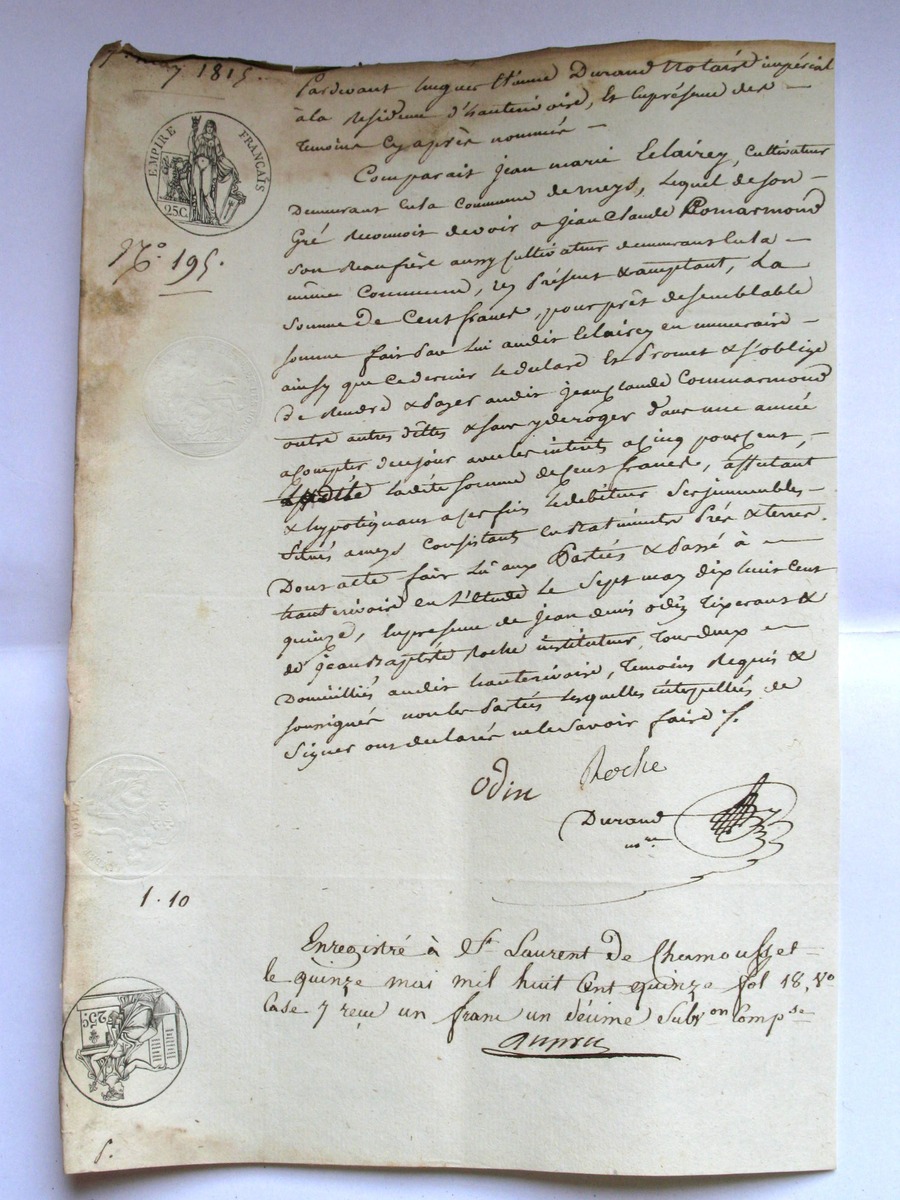 7 may 1815.
EMPIRE FRANÇAIS
25C.
N.o 195.
Pardevant hugues Etienne Durand Notaire impérial
à la residence d'hauterivoire, et en présence des
temoins cy après nommés
Comparait jean marie Eclairey, Cultivateur
Demeurant en la Commune de meys, lequel de son
Gré reconnoit devoir a jean Claude Comarmond
son Beaufrère aussy Cultivateur demeurant en la
même Commune, icy présent & acceptant, La
somme de Cent francs, pour prêt de semblable
somme fait par lui audit Eclairey en numeraire
ainsy que ce dernier le declare Et Promet & s'oblige
de Rendre & payer audit jean Claude Commarmond
outre autres dettes & sans y deroger dans une année
a compter de ce jour avec les intérêts a cinq pour cent,
ladite somme de Cent francs, affectant
& hypotéquant a ces fins le debiteur ses immeubles
situés a meys consistants en Batiments Prés & terres.
Dont acte fait Lu aux Parties & Passé à
hauterivoire en l'étude le Sept may dix huit Cent
quinze, en presence de jean denis odin Tixerant &
de jean Baptiste Roche instituteur, Tous deux
Domiciliés audit hauterivoire, Temoins Requis &
soussignés non les Parties lesquelles interpellées de
signer ont declarés ne le savoir faire ./.
Odin Roche
Durand
no.re
1.10
Enregistré à St Laurent de Chamousset
le quinze mai mil huit Cent quinze fol 18, Vo
Case 7 reçu un franc un décime Subv.on Comp.se
25C.